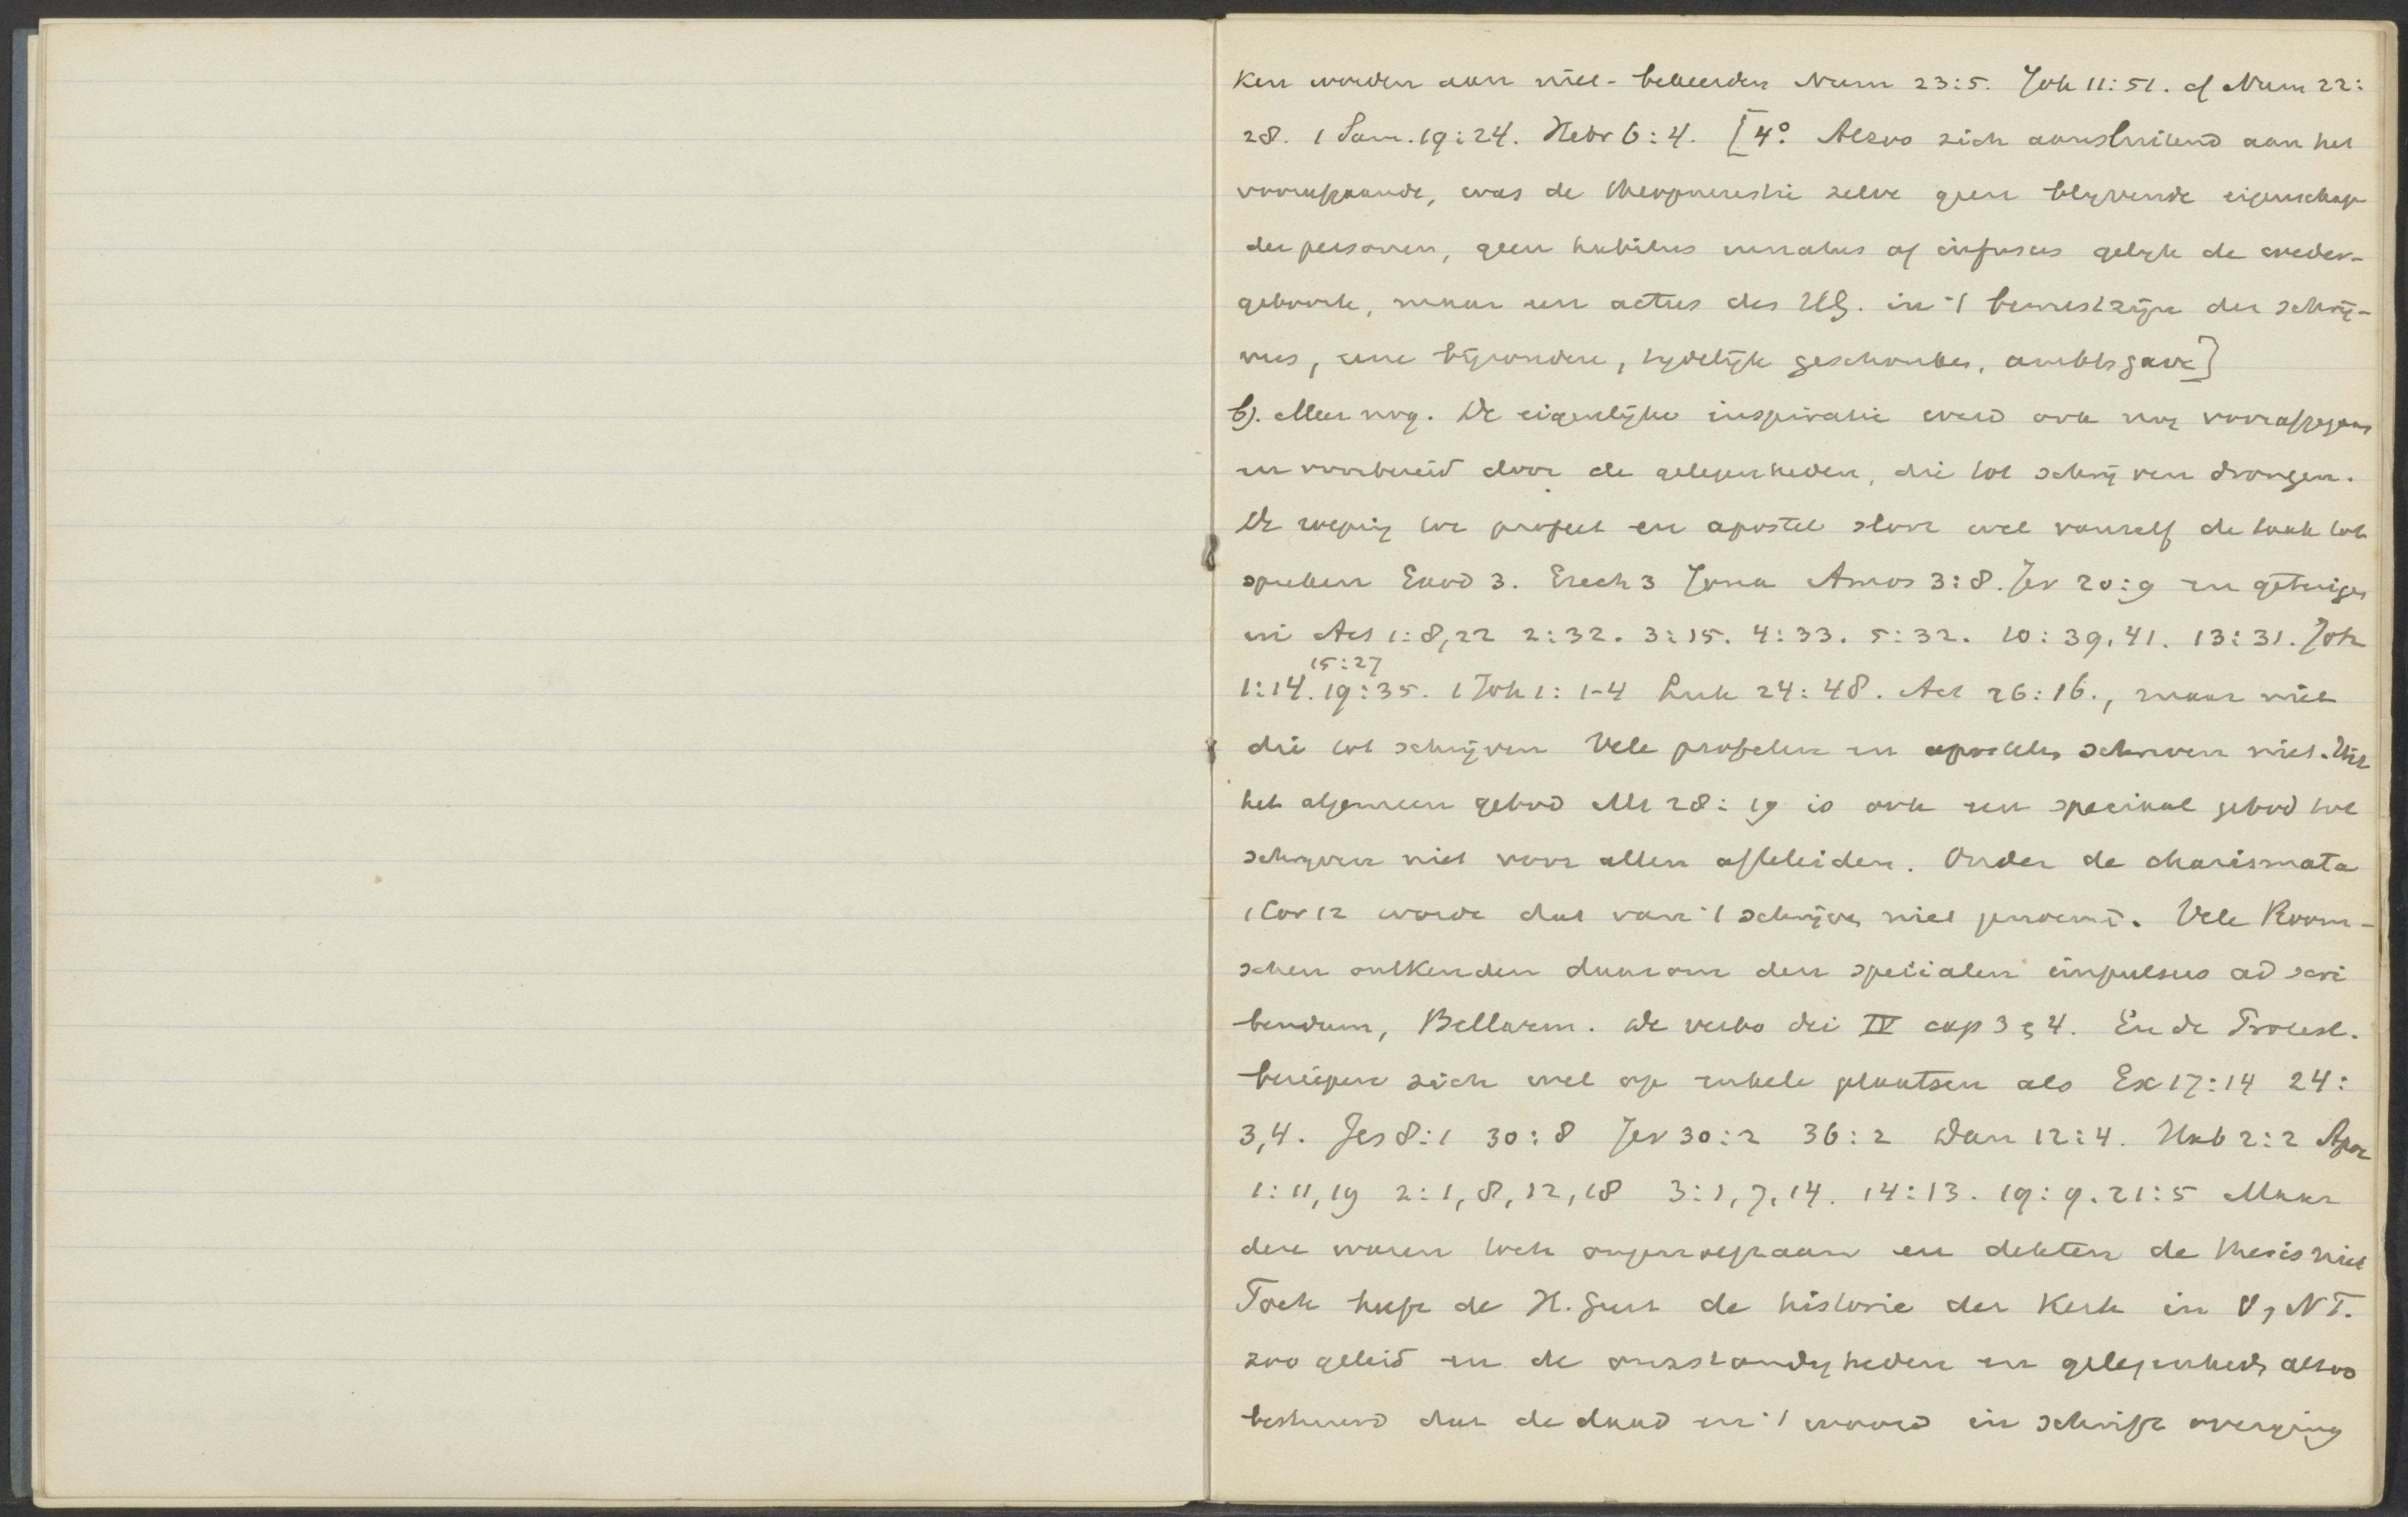 ken worden aan niet-bekeerden Num 23:5. Joh 11:51. cf Num 22:
28. 1 Sam. 19:24. Hebr 6:4. [4° Alzoo zich aansluitend aan het
voorafgaande, was de theopneustie zelve geen blijvende eigenschap
der personen, geen habitus innatus of infusus gelijk de weder-
geboorte, maar een actus des HG. in 't bewustzijn der schrij-
vers, eene bijzondere, tydelijke geschonken, ambtsgave]
b). Meer nog. De eigenlijke inspiratie werd ook nog voorafgegaan
en voorbereid door de gelegenheden, die tot schrijven drongen.
De roeping tot profeet en apostel sloot wel vanzelf de taak tot
spreken Exod 3. Ezech 3 Jona Amos 3:8. Jer 20:9 en getuigen
in Act 1:8,22 2:32. 3:15. 4:33. 5:32. 10:39,41. 13:31. Joh
15:27
1:14. 19:35. 1 Joh 1:1-4 Luk 24:48. Act 26:16., maar niet
die tot schrijven Vele profeten en apostelen schreven niet. Uit
het algemeen gebod Mt 28:19 is ook een speciaal gebod tot
schryven niet voor allen afteleiden. Onder de charismata
1 Cor 12 wordt dat van 't schrijven niet genoemd. Vele Room-
schen ontkenden daarom den specialen impulsus ad scri
bendum, Bellarm. de verbo dei IV cap 3, 4. En de Protest.
beriepen zich wel op enkele plaatsen als Ex 17:14 24:
3,4. Jes 8:1 30:8 Jer 30:2 36:2 Dan 12:4. Hab 2:2 Apoc
1:11,19 2:1,8,12,18 3:1,7,14. 14:13. 19:9. 21:5 Maar
deze waren toch ongenoegzaam en dekten de thesis niet
Toch heeft de H. Geest de historie der Kerk in O, NT.
zoo geleid en de omstandigheden en gelegenheden alzoo
bestuurd dat de daad en 't woord in schrift overging